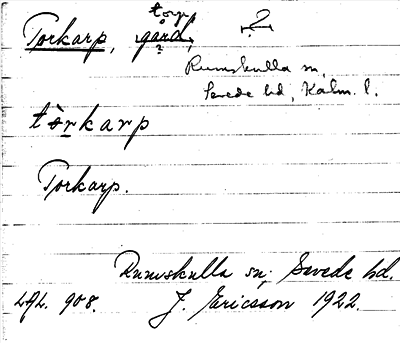 torp
Torkarp, gård, 2
?
Rumskulla sn,
Sevede hd, Kalm. l.
tòrkarp
Torkarp.
Rumskulla sn; Sevede hd.
J. Ericsson 1922.